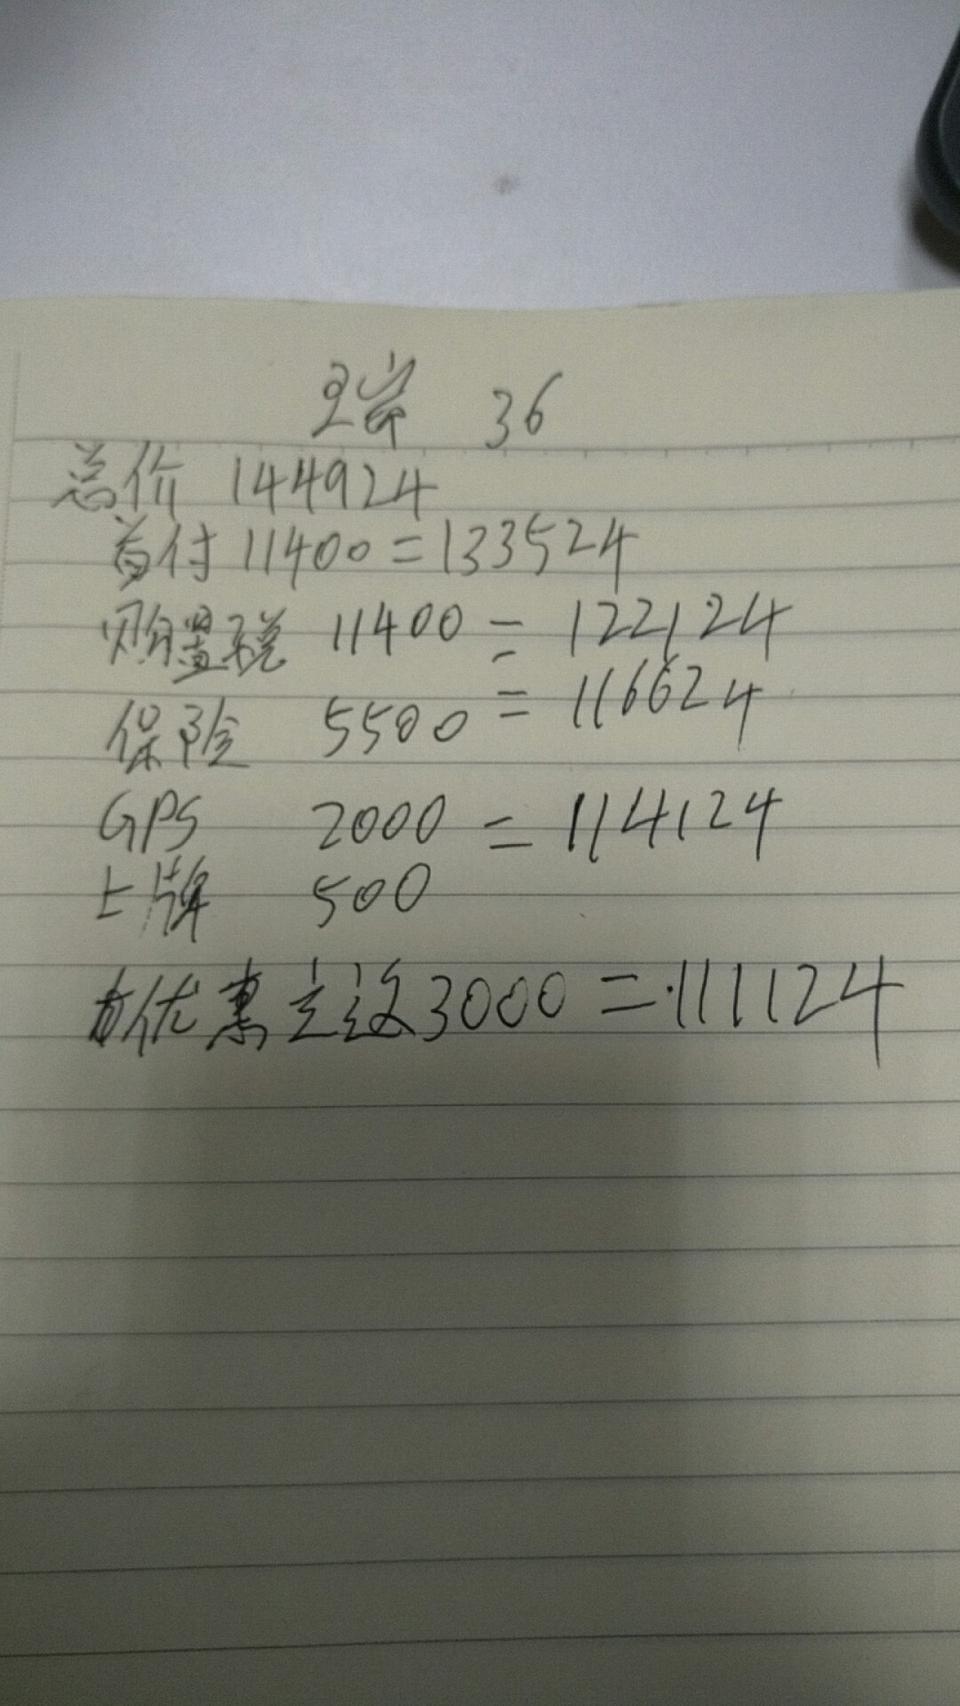 瑞 36
总价 144924
首付 11400=133524
购置税 11400=122124
保险 5500=116624
GPS 2000=114124
上牌 500
优惠立减3000=111124